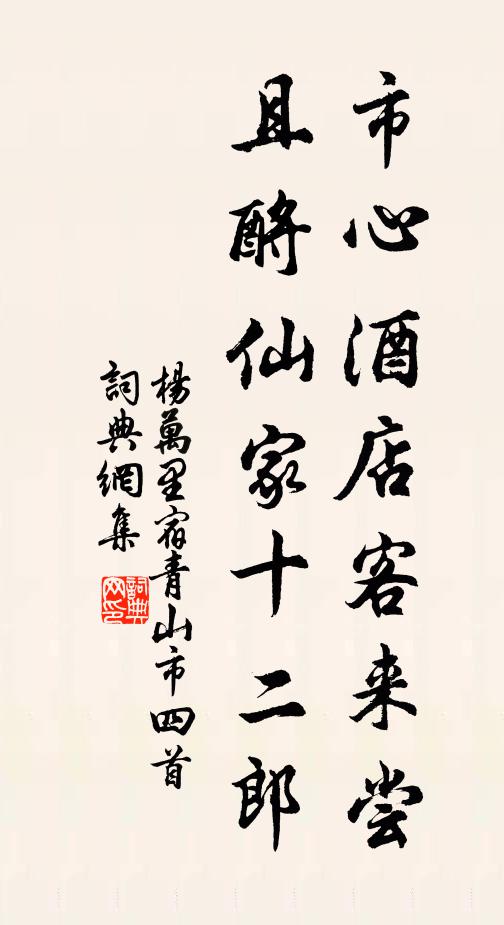 市心酒店客来尝
且酹仙家十二郎
楊萬里宿青山市四首
詞典網集
詞典
网印